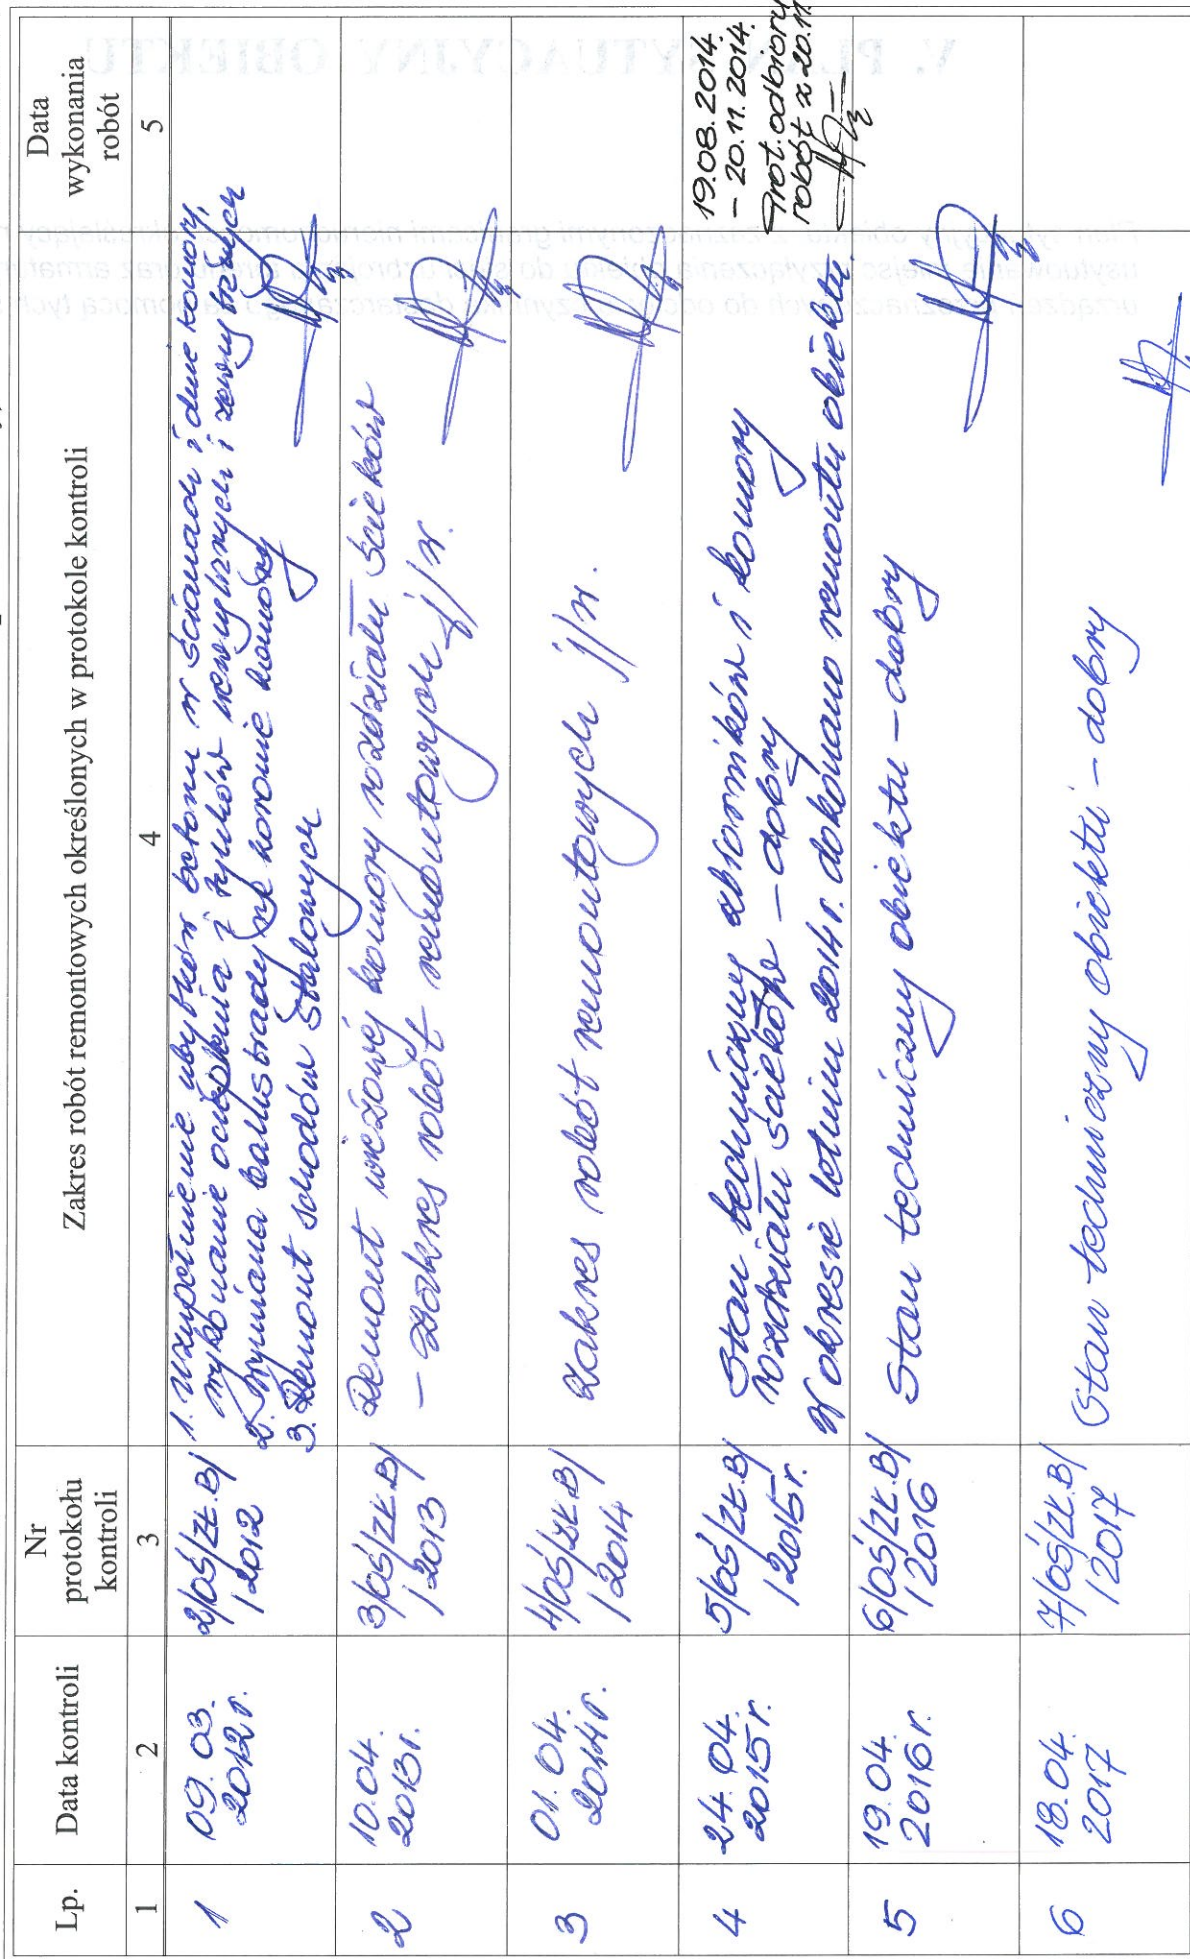 Lp.
Data kontroli
Nr
protokołu
kontroli
Zakres robót remontowych określonych w protokole kontroli
Data
wykonania
robót
1
2
3
4
5
1
09.03.
2012r.
2/OŚ/ZŁ.B/
/2012
1. Uzupełnienie ubytków betonu w ścianach i dnie komory,
wykonanie ocieplenia i tynków wewnętrznych i zewnętrznych
2. Wymiana balustrady na koronie komory
3. Remont schodów stalowych
2
10.04.
2013r.
3/OŚ/ZŁ.B/
/2013
Remont wieżowej komory rozdziału ścieków
– zakres robót remontowych j/w.
3
01.04.
2014r.
4/OŚ/ZŁ.B/
/2014
Zakres robót remontowych j/w.
4
24.04.
2015r.
5/OŚ/ZŁ.B/
/2015r.
Stan techniczny zbiorników i komory
rozdziału ścieków – dobry
W okresie letnim 2014r. dokonano remontu obiektu
19.08.2014.
– 20.11.2014.
Prot. odbioru
robót z 20.11
5
19.04.
2016r.
6/OŚ/ZŁ.B/
/2016
Stan techniczny obiektu – dobry
6
18.04.
2017
7/OŚ/ZŁ.B/
/2017
Stan techniczny obiektu – dobry